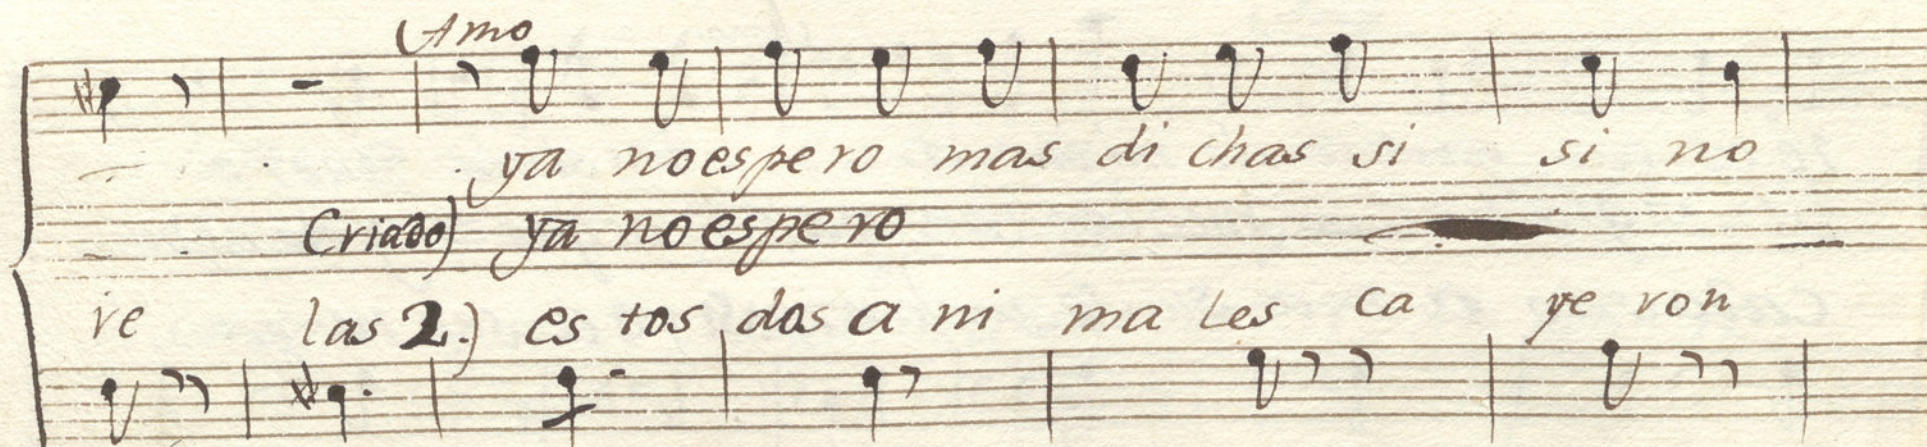 Amo
ya no espero mas di chas si si no
Criado) ya no espero
re las 2.) es tos dos a ni ma les ca ye ron